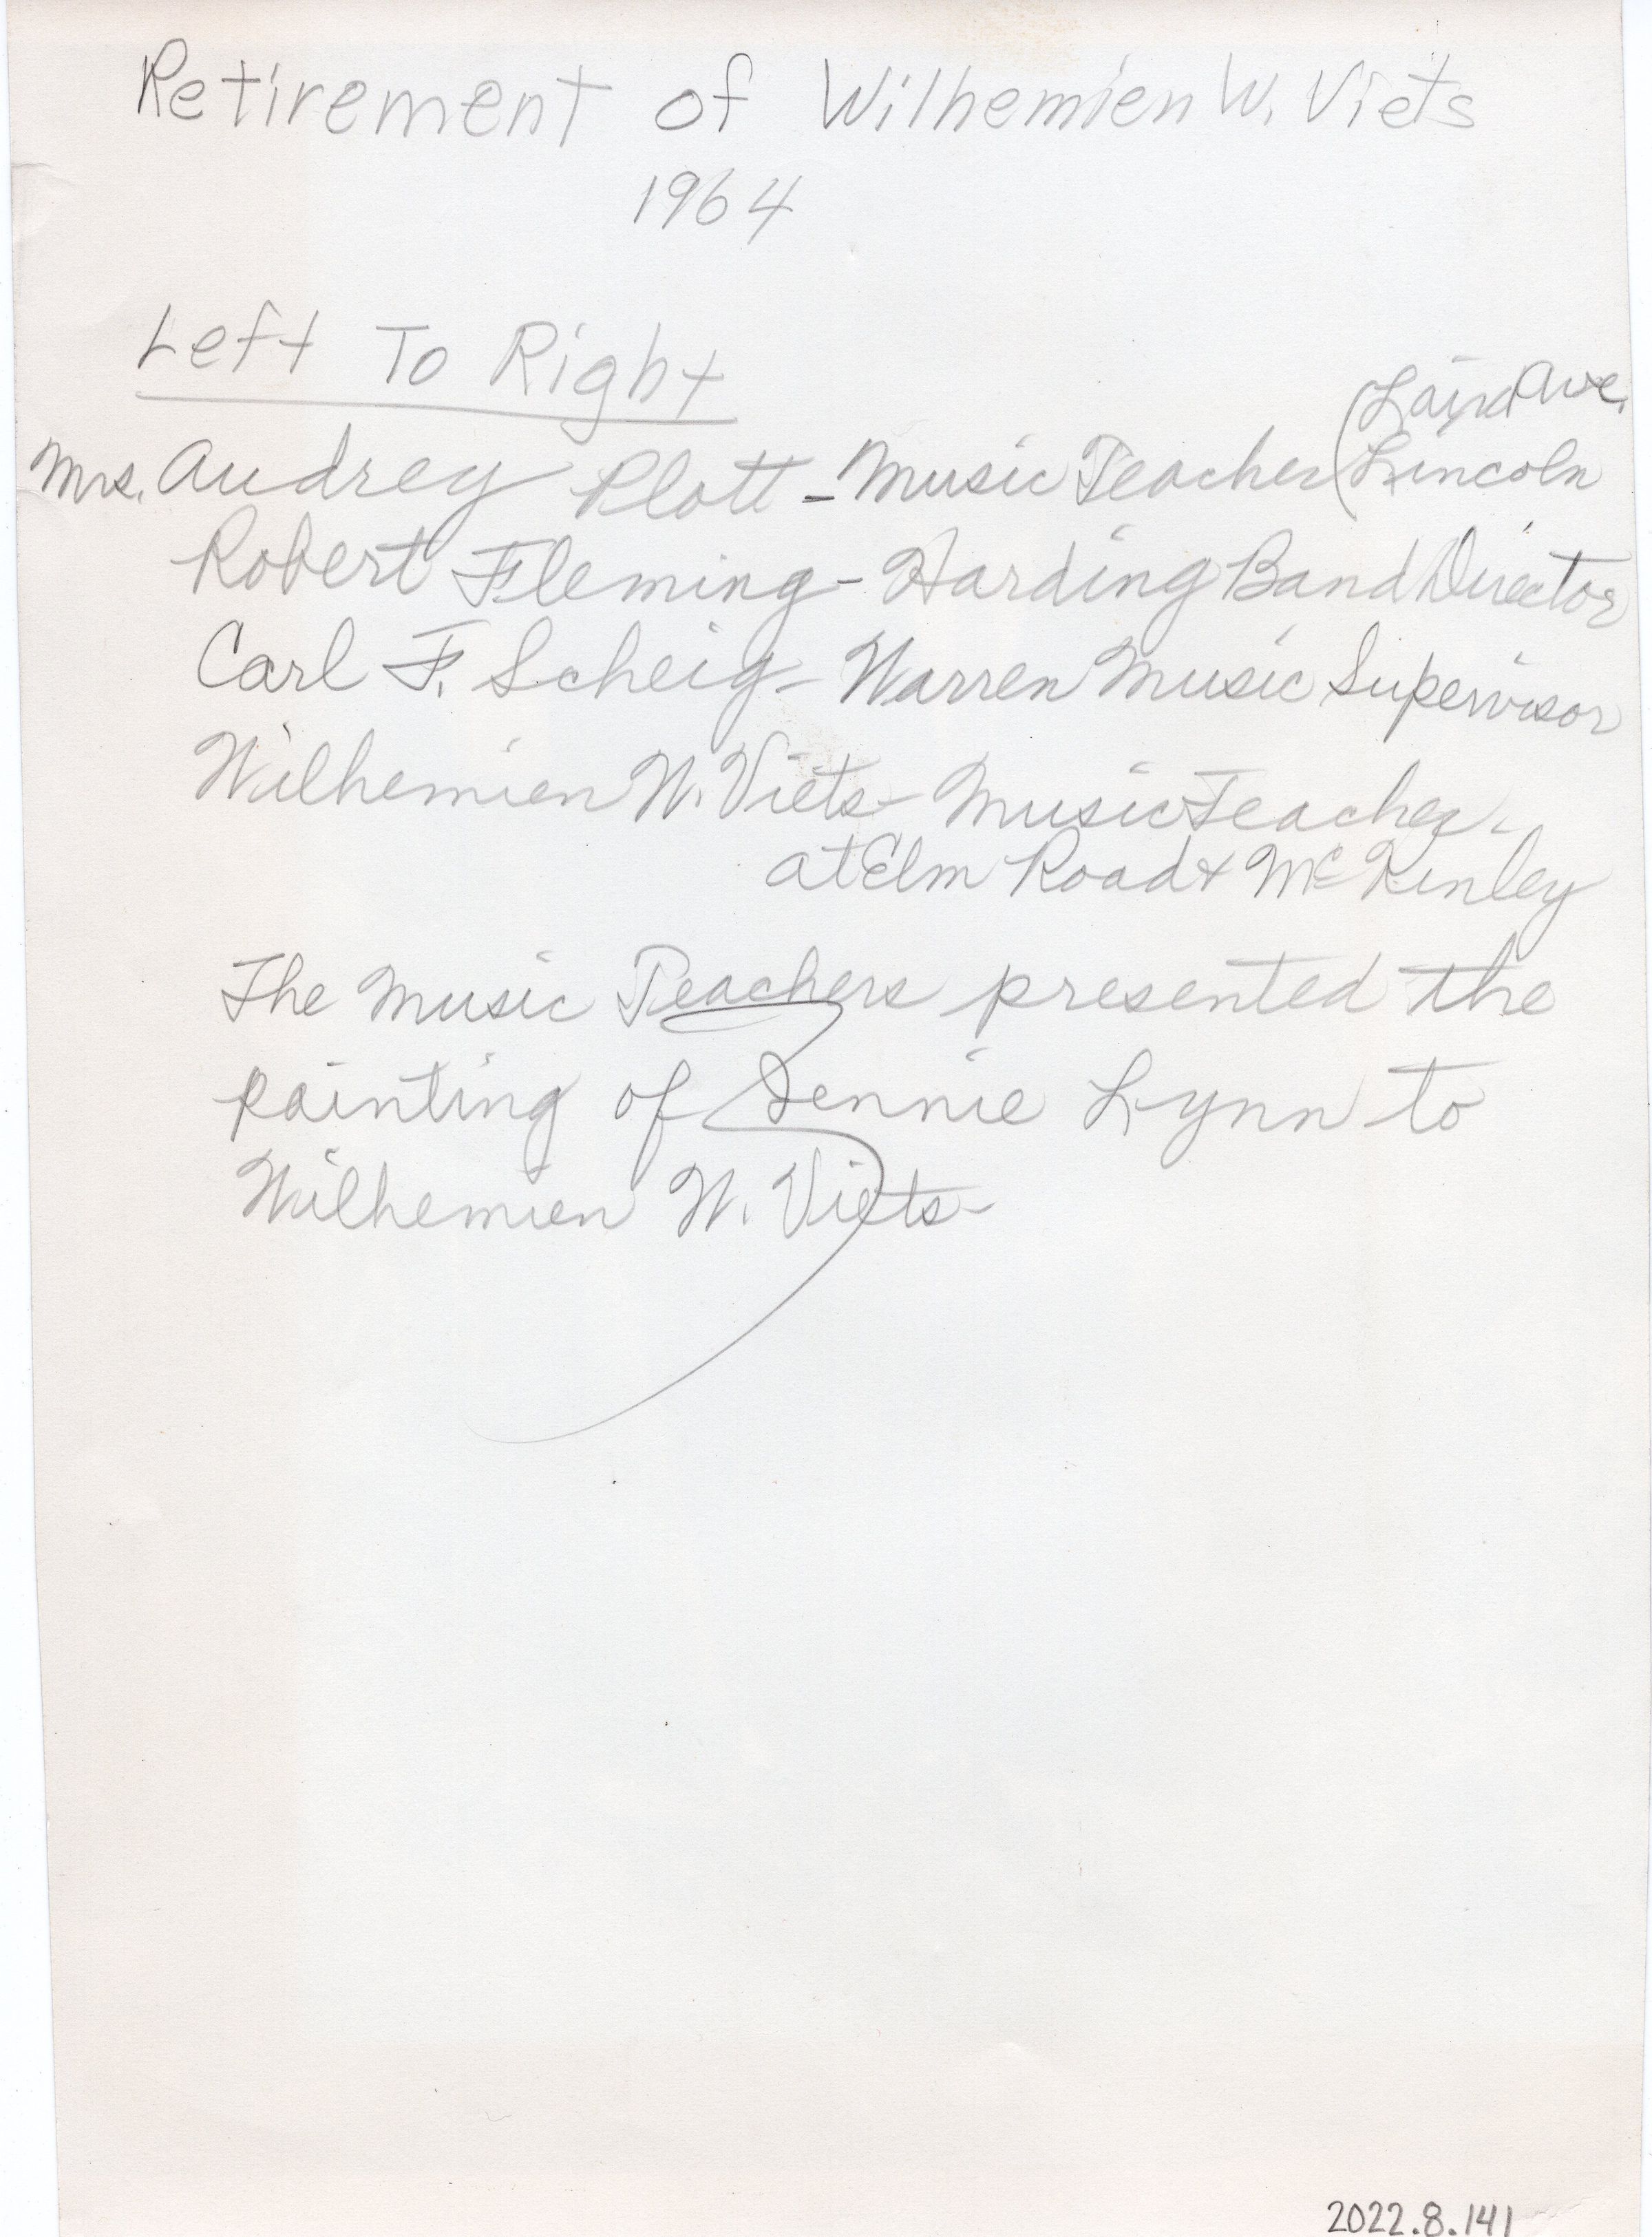 Retirement of Wilhemien W. Viets
1964
Left To Right
Laird Ave.
Mrs. Audrey Plott - Music Teacher (Lincoln
Robert Fleming - Harding Band Director
Carl F. Scheig - Warren Music Supervisor
Wilhemien W. Viets - Music Teacher -
at Elm Road & McKinley
The Music Teachers presented the
painting of Jennie Lynn to
Wilhemien W. Viets -
2022.8.141